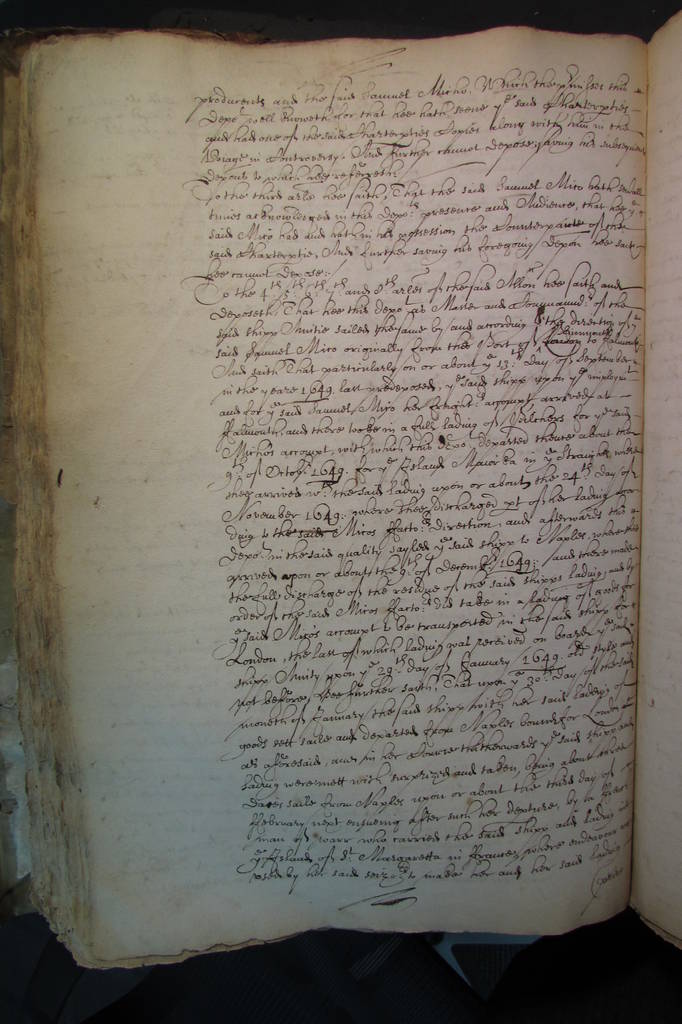 producents and the said Samuel Micho, Which the premisses this
Depot well knoweth for that hee hath seene ye said Charterparties
and had one of the said Charterparties Copies along with him in the
Voiage in Controversy. And further cannot depose, saving his subsequent
depons to which hee referreth.
To the third arle hee saith, That the said Samuel Mico hath severall
times acknowledged in this Depots presence and Audience, that hee ye
said Mico had and hath in his possession the Counterparte of the
said Charterptie, And further saving his foregoing depon hee saith
hee cannot depose:
To the 4th 5th 6th 7th and 8th arles of the said Allon hee saith and
deposeth, That hee this depot as Master and Commandr of the
said shipp Unitie sailed the same by and according to the direction of ye
said Samuel Mico originally from the Port of London to Falmouth
And saith That particularly on or about ye 13th day of September
in the yeare 1649 last predeposed, ye said shipp upon ye imploymt
and for ye said Samuel Mico her freighters accompt arrived at
Falmouth, and there tooke in a full lading of Pilchers for ye said
Micho's accompt, with which this depot departed thence about the
9th of Octobr 1649. for ye Island Maiorka in ye Straights where
shee arrived wth the said lading upon or about the 24th day of
November 1649: where shee discharged pt of her lading accor
ding to the said Micos Factors direction, and afterwards this
depot in the said quality sayled ye said shipp to Naples, where shee
arrived upon or about the 9th of Decembr 1649: and there made
the full discharge of the residue of the said shipps lading, and by
order of the said Micos factors did take in a lading of goods for
ye said Mico's accompt to be transported in the said shipp for
London, the last of which lading was received on board ye said
shipp Unity upon ye 29th day of January 1649 old style and
not before, Hee further saith, That upon ye 30th day of the said
moneth of January the said shipp with her said lading of
goods sett saile and departed from Naples bound for London
as aforesaid, and in her Course thitherwards ye said shipp and
lading were mett with surprized and taken, being about three
dayes saile from Naples upon or about the third day of
February next ensueing after such her depture, by a French
man of warr who carried the said shipp and lading unto
ye Island of St Margaretta in France, where endeavour was
used by her said seizors to make her and her said lading